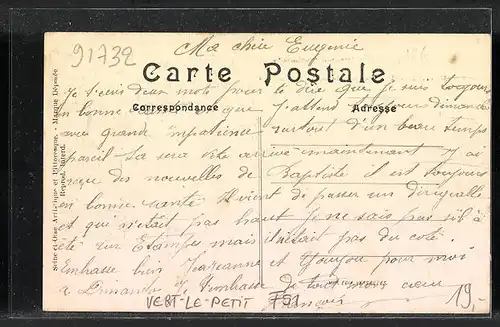 91732
Ma chère Eugenie
Carte Postale
Je t'écris deux mots pour te dire que je suis toujours
en bonne
Correspondance
que j'attend toujours dimanche
Adresse
avec grand impatience surtout d'un beau temps
pareil Sa sera vite arrivé maintenant J'ai
reçue des nouvelles de Baptiste il est toujours
en bonne santé Il vient de passer un dirigeable
et qui n'était pas haut Je ne sais pas s'il à
été sur Etampes mais il n'était pas du coté.
Embrasse bien Jeanne et pour moi
a Dimanche Je t'embrasse de tout mon cœur
François
VERT-LE-PETIT
751
19,-
Seine-et-Oise Artistique et Pittoresque. - Marque Déposée
Reprod. Interd.